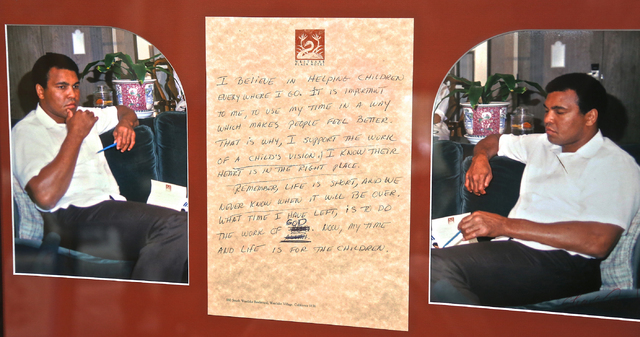 I BELIEVE IN HELPING CHILDREN
EVERYWHERE I GO. IT IS IMPORTANT
TO ME, TO USE MY TIME IN A WAY
WHICH MAKES PEOPLE FEEL BETTER.
THAT IS WHY, I SUPPORT THE WORK
OF A CHILD'S VISION, I KNOW THEIR
HEART IS IN THE RIGHT PLACE.
REMEMBER, LIFE IS SHORT, AND WE
NEVER KNOW WHEN IT WILL BE OVER.
WHAT TIME I HAVE LEFT, IS TO DO
THE WORK OF GOD. NOW, MY TIME
AND LIFE IS FOR THE CHILDREN.